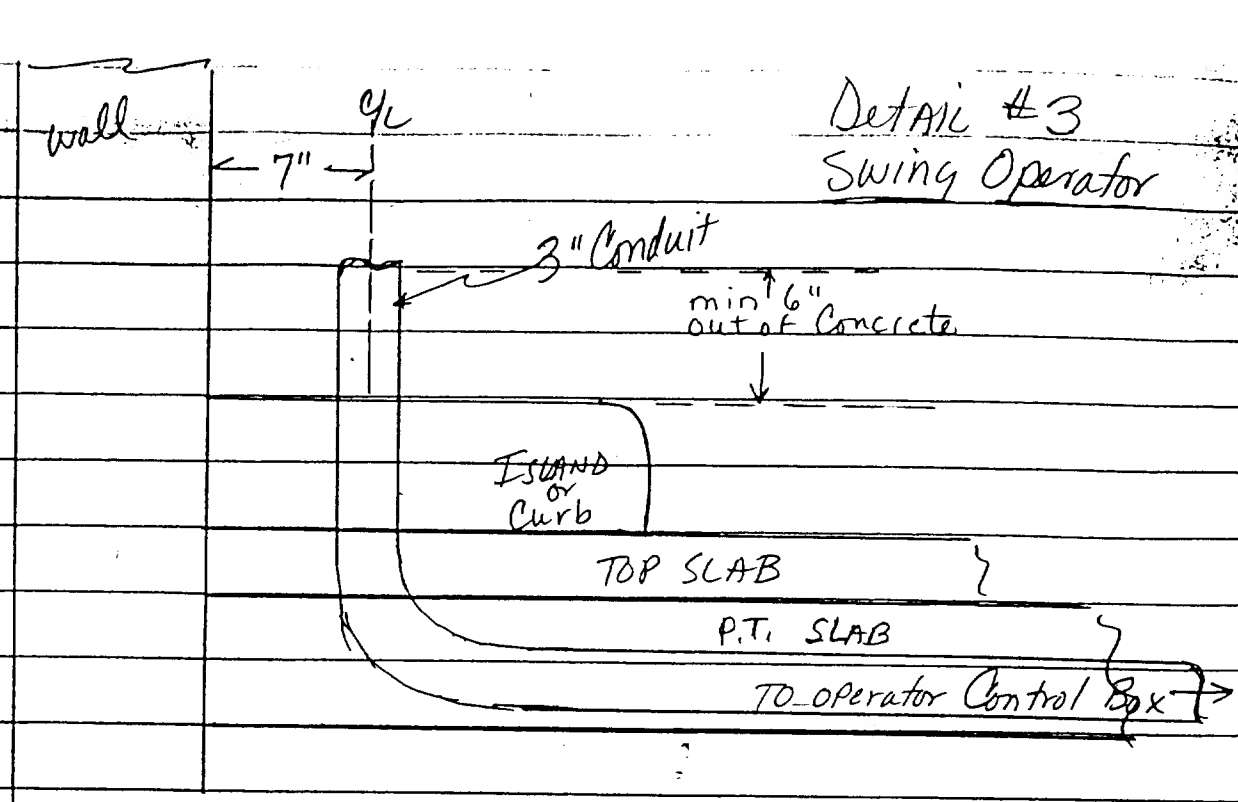 Detail #3
Swing Operator
wall
C/L
7"
3" Conduit
min 6"
out of Concrete
ISLAND
or
Curb
TOP SLAB
P.T. SLAB
TO OPerator Control Box